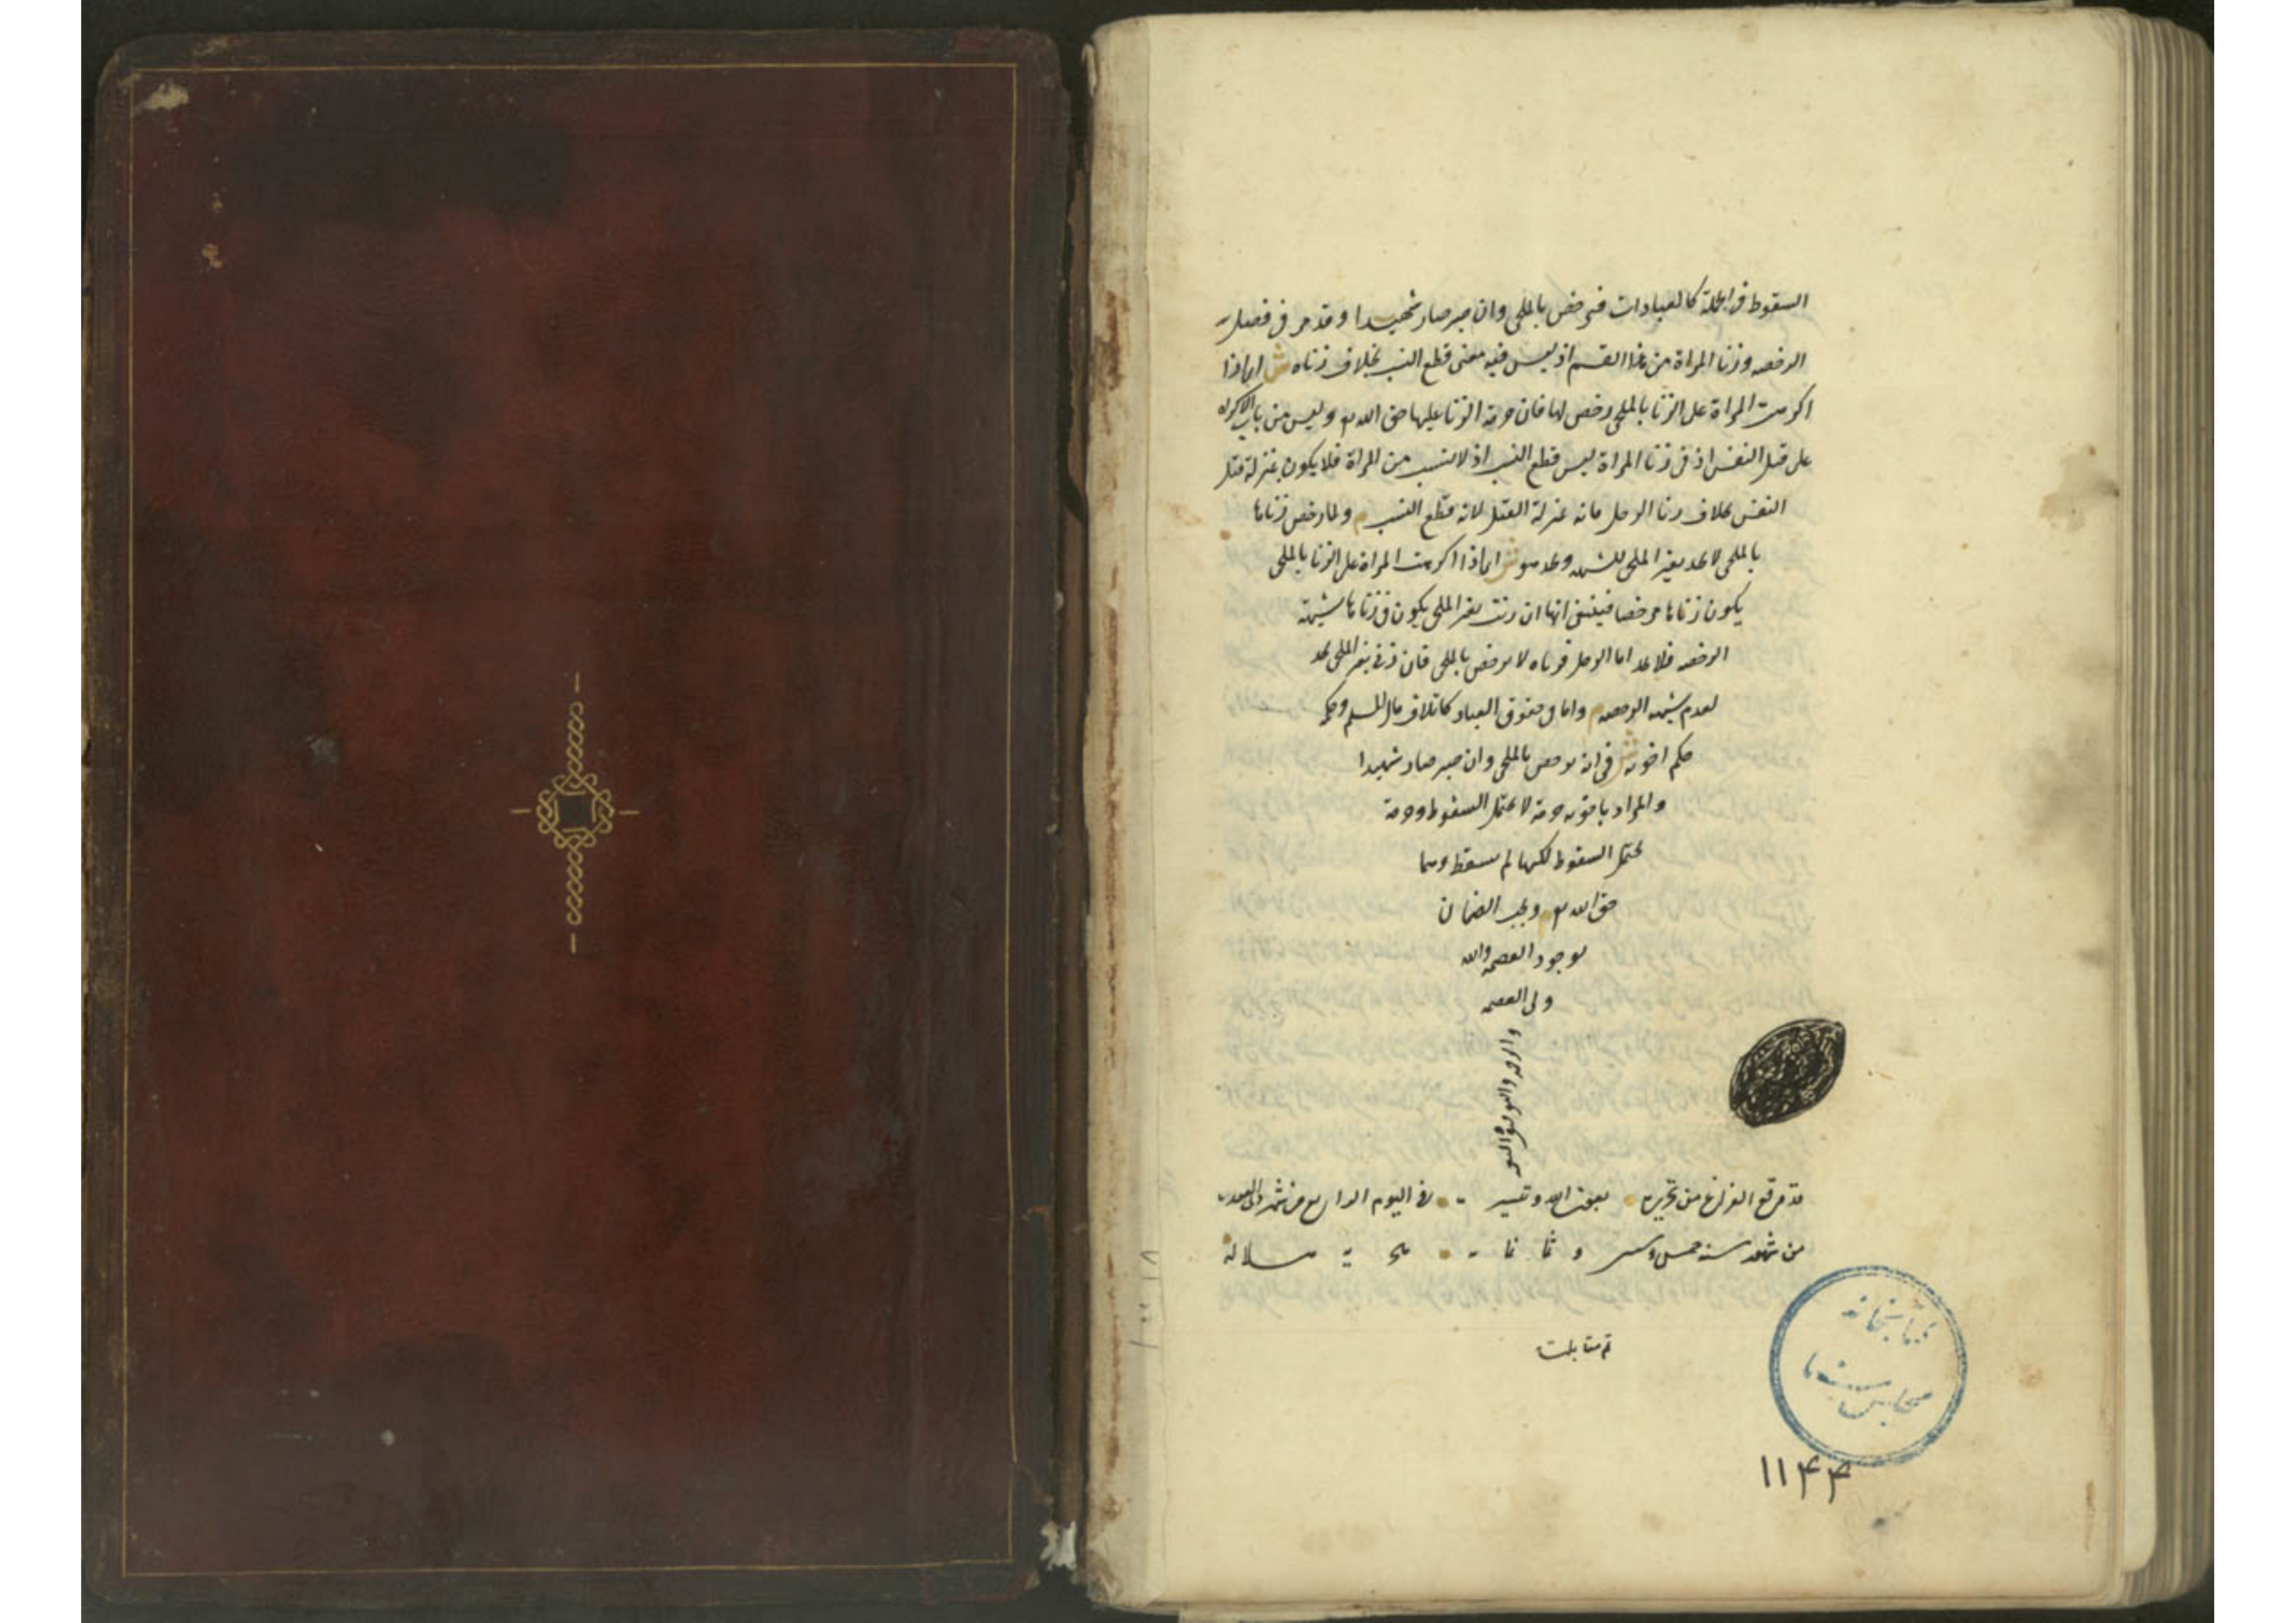 السقوط في الجملة كالعبادات فيرخص بالملجي وان صبر صار شهيدا وقد مر في فصل
الرخصه وزنا المراة من هذا القسم اذ ليس فيه معنى قطع النسب بخلاف زناه ش اى اذا
اكرهت المراة على الزنا بالملجي رخص لها فان حرمة الزنا عليها حق الله تع وليس من باب الاكراه
على قتل النفس اذ في زنا المراة ليس قطع النسب اذ لا نسب من المراة فلا يكون بمنزلة قتل
النفس بخلاف زنا الرجل فانه بمنزلة القتل لانه قطع النسب م ولما رخص زناها
بالملجي لا تحد بغير الملجي للشبهه ويحد هو ش اى اذا اكرهت المراة على الزنا بالملجي
يكون زناها مرخصا فينبغي انها ان زنت بغير الملجي يكون في زناها شبهة
الرخصه فلا تحد اما الرجل فزناه لا يرخص بالملجي فان زنى بغير الملجي يحد
لعدم شبهه الرخصه م واما في حقوق العباد كاتلاف مال المسلم وحكمه
حكم اخويه ش في انه يرخص بالملجي وان صبر صار شهيدا
والمراد باخويه حرمة لا تحتمل السقوط وحرمة
تحتمل السقوط لكنها لم تسقط وهما
حق الله تع م ويجب الضمان
لوجود العصمه والله
ولى العصمه
والرحمه والتوفيق
قد وقع الفراغ من تحريره بعون الله وتيسيره في اليوم الرابع من شهر ذى القعده
من شهور سنه خمس و وثمانمائة
تم مقابلته
كتابخانه
مجلس سنا
۱۱۴۴